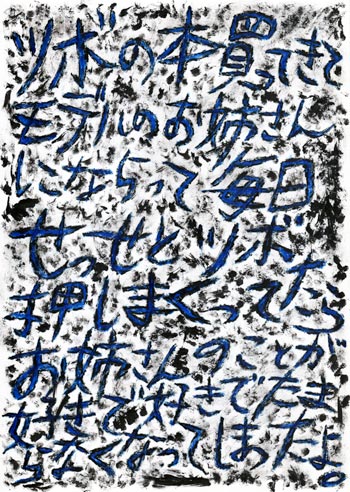 ツボの本買ってきて
モデルのお姉さん
にならって毎日
せっせとツボ
押しまくってたら
お姉さんのことが
好きで好きでたま
らなくなってしまたよ。